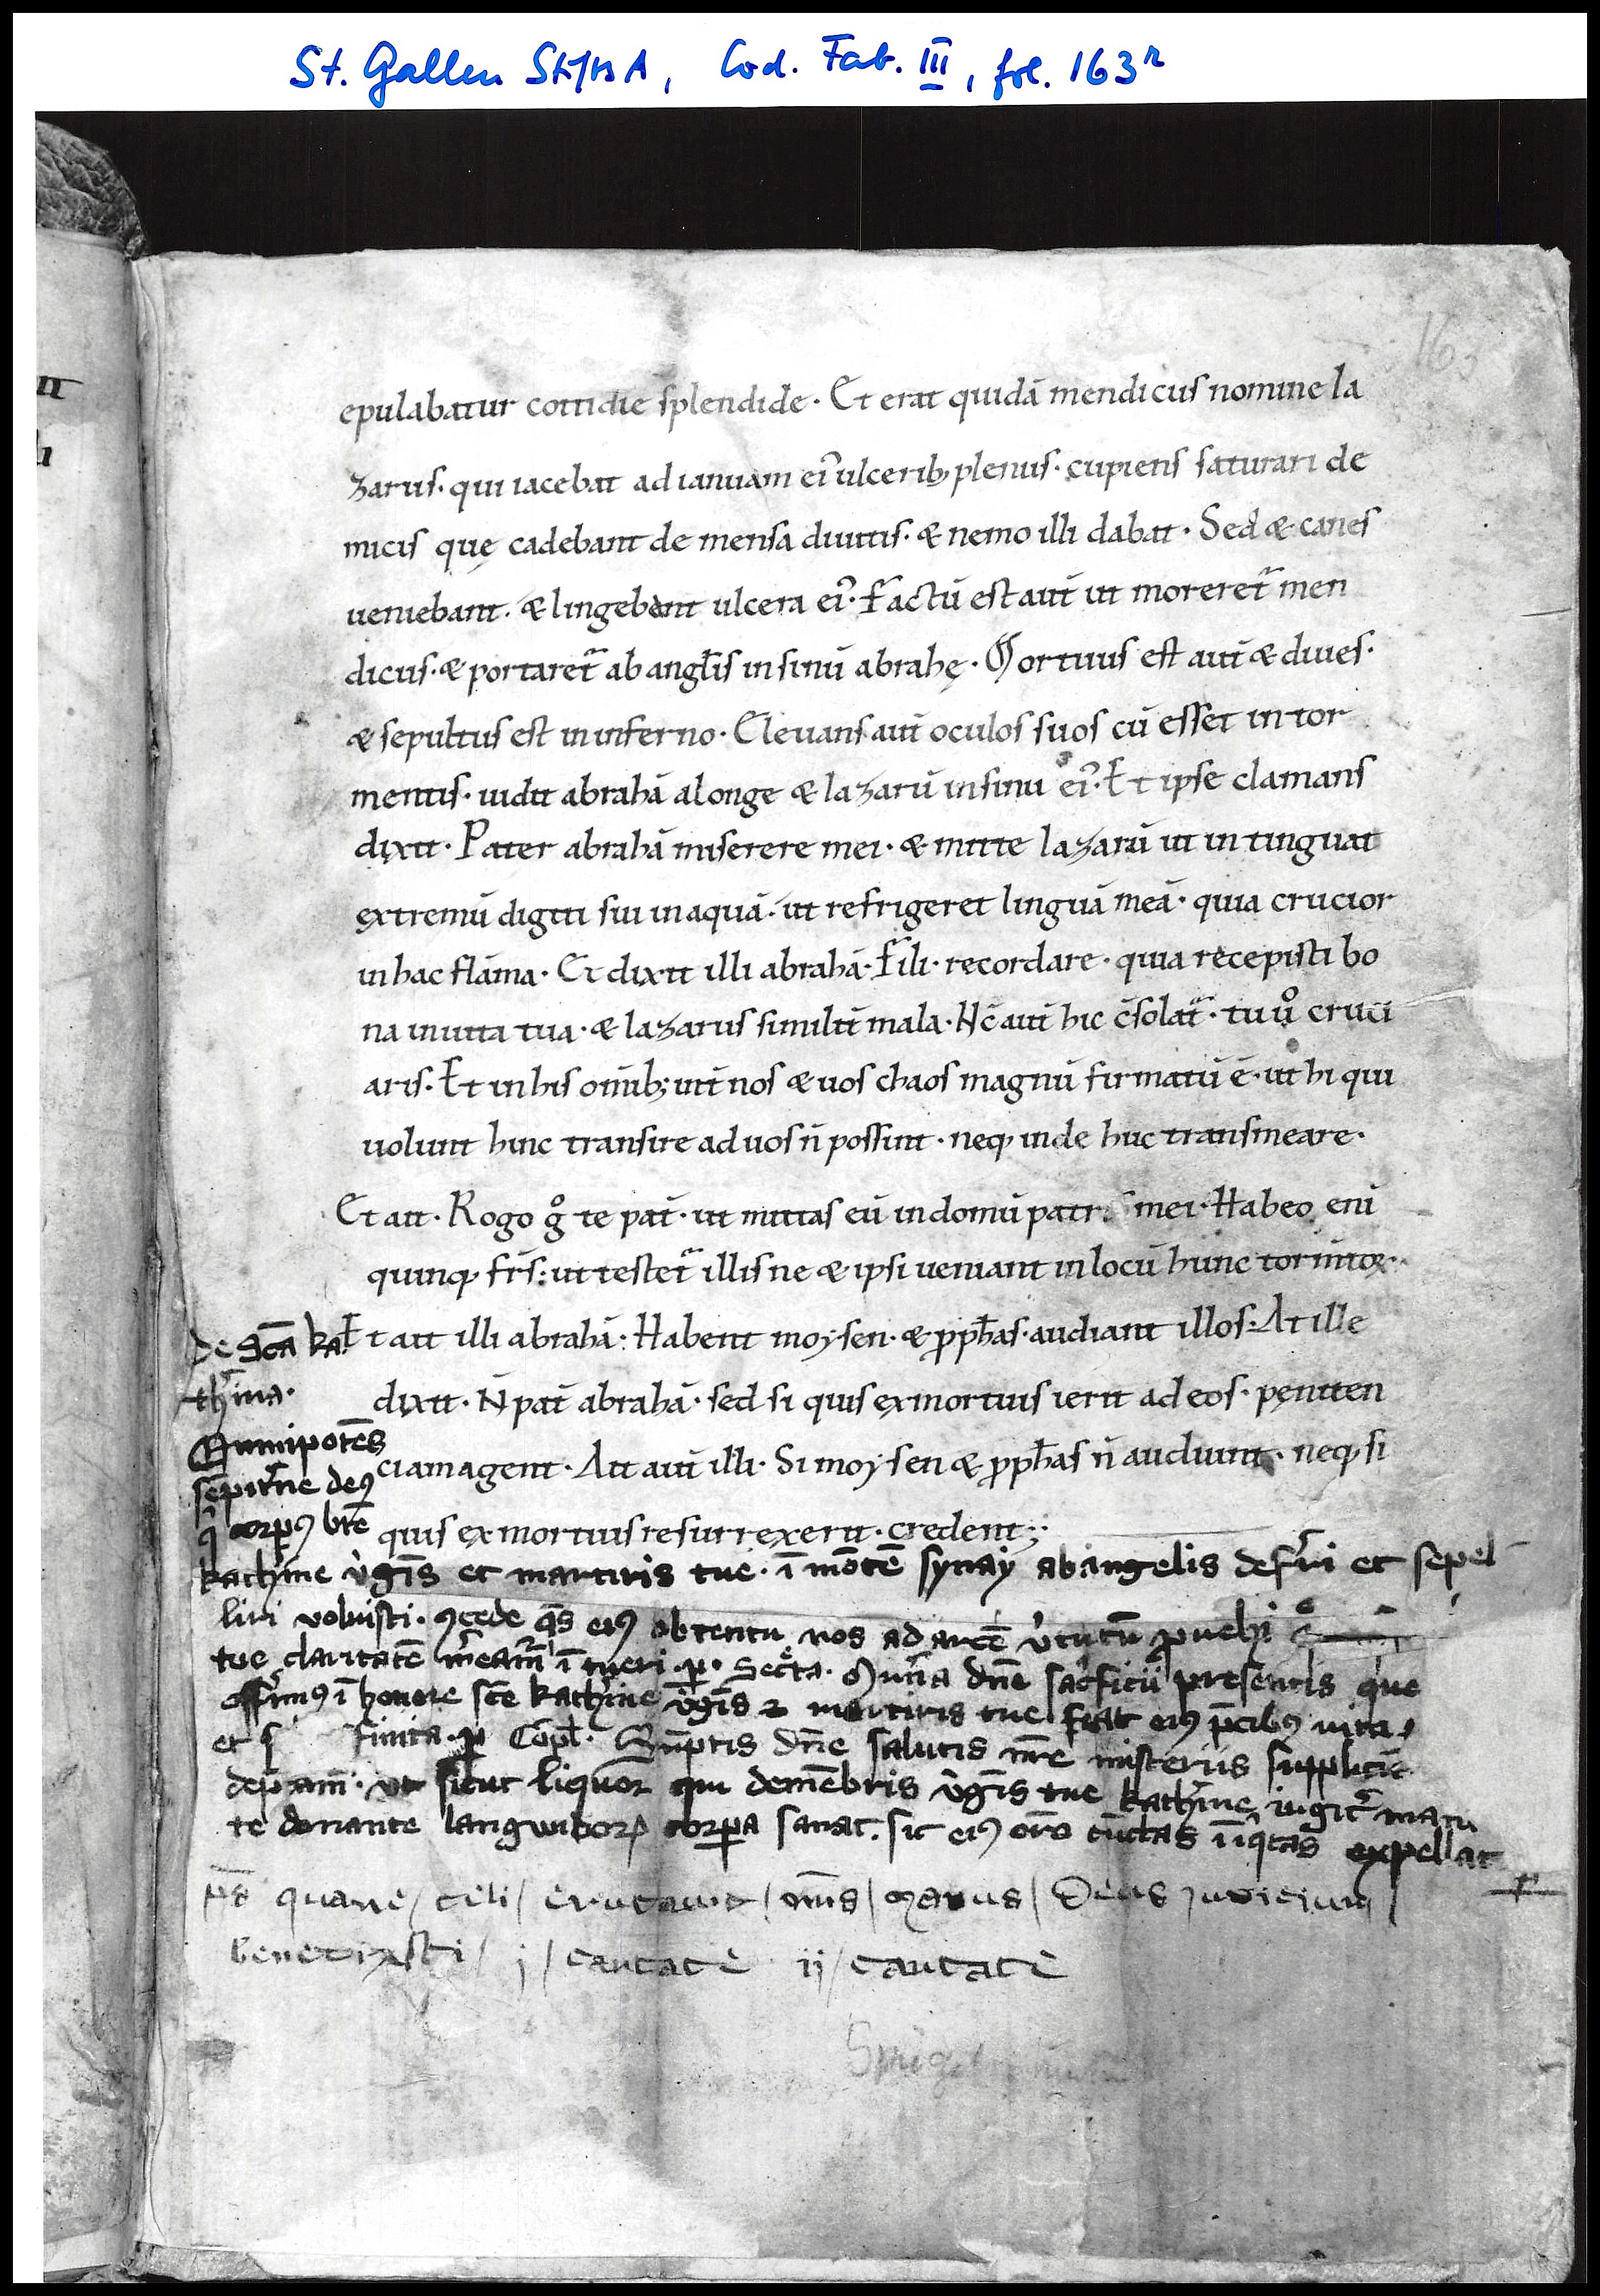 St. Gallen StiftsA, Cod. Fab. III, fol. 163r
163
epulabatur cottidie splendide · Et erat quidā mendicus nomine la
zarus · qui iacebat ad ianuam ei᾿ ulcerib; plenus · cupiens saturari de
micis quę cadebant de mensa diuitis · & nemo illi dabat · Sed & canes
ueniebant · & lingebant ulcera ei᾿ · Factū est aut̄ ut moreret᾿ men
dicus · & portaret᾿ ab angl̄is in sinū abrahę · Mortuus est aut̄ & diues ·
& sepultus est in inferno · Eleuans aut̄ oculos suos cū esset in tor
mentis · uidit abrahā a longe & lazarū in sinu ei᾿ · Et ipse clamans
dixit · Pater abrahā miserere mei · & mitte lazarū ut intinguat
extremū digiti sui in aquā · ut refrigeret linguā meā · quia crucior
in hac flāma · Et dixit illi abrahā · Fili · recordare · quia recepisti bo
na in uita tua · & lazarus similit̄ mala · Nc̄ aut̄ hic c̄solat᾿ · tu ů cruci
aris · Et in his om̄ib; int̄ nos & uos chaos magnū firmatū ē · ut hi qui
uolunt hinc transire ad uos n̄ possint · neq; inde huc transmeare ·
Et ait · Rogo g̊ te pat̄ · ut mittas eū in domū patr s mei · Habeo eni̅
quinq; fr̄s : ut testet᾿ illis ne & ipsi ueniant in locū hunc tormtoꝝ ·
Et ait illi abrahā · Habent moysen · & ꝓph̄as · audiant illos · At ille
dixit · N̄ pat̄ abrahā · sed si quis ex mortuis ierit ad eos · peniten
ciam agent · Ait aut̄ illi · Si moysen & ꝓph̄as n̄ audiunt · neq; si
quis ex mortuis resurrexerit · credent ;·
De Scā ka
th᾿ina ·
Omnipotēs
sēpit᾿ne deꝰ
q̇ corpꝰ bt̄e
kath᾿ine v᾿gīs et martiris tue · ī mōtē synay ab angelis def᾿ri et sepel
liri voluisti · ꝯcede q̄s eiꝰ obtentu nos ad arcē v᾿tutū ꝓuehi
tue claritatē m᾿eam᾿ ītueri · ꝑ · Sec᾿ta · Mun᾿a dn̄e sac᾿ficii presentis que
off᾿imꝰ ī honore sc̄e kath᾿ine v᾿gīs et martiris tue fiat eiꝰ p̄cibꝰ uita
et finita · ꝑ Cōpl̄ · Sūptis dn̄e salutis nr̄e misteriis supplicit᾿
dep᾿cam᾿ · ut sicut liquor qui de mēbris v᾿gīs tue kath᾿ine iugit᾿ manat
te donante langwidoꝝ corꝑa sanat · sic eiꝰ or̄o cūctas īiq̇tas expellat
ꝑ
ps̄ quare / celi / eructauit / om̄s / Magnus / Deus iudicium /
benedixisti / j / cantate ij / cantate